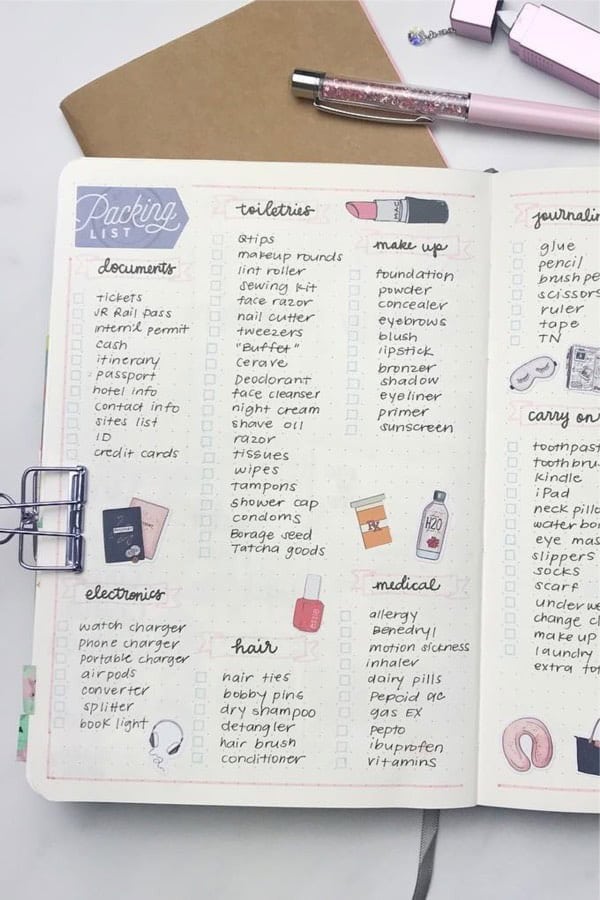 Packing
LIST
documents
tickets
JR Rail pass
intern'l permit
cash
itinerary
passport
hotel info
contact info
sites list
ID
credit cards
electronics
watch charger
phone charger
portable charger
airpods
converter
splitter
book light
toiletries
Qtips
makeup rounds
lint roller
sewing kit
face razor
nail cutter
tweezers
"Buffet"
cerave
Deodorant
face cleanser
night cream
shave oil
razor
tissues
wipes
tampons
shower cap
condoms
Borage seed
Tatcha goods
hair
hair ties
bobby pins
dry shampoo
detangler
hair brush
conditioner
MAC
make up
foundation
powder
concealer
eyebrows
blush
lipstick
bronzer
shadow
eyeliner
primer
sunscreen
Rx
H2O
essie
medical
allergy
Benedryl
motion sickness
inhaler
dairy pills
pepcid ac
gas EX
pepto
ibuprofen
vitamins
journalin
glue
pencil
brush pe
scissors
ruler
tape
TN
carry on
toothpast
toothbru
kindle
iPad
neck pillo
water bo
eye mas
slippers
socks
scarf
underwe
change cl
make up
laundry
extra to